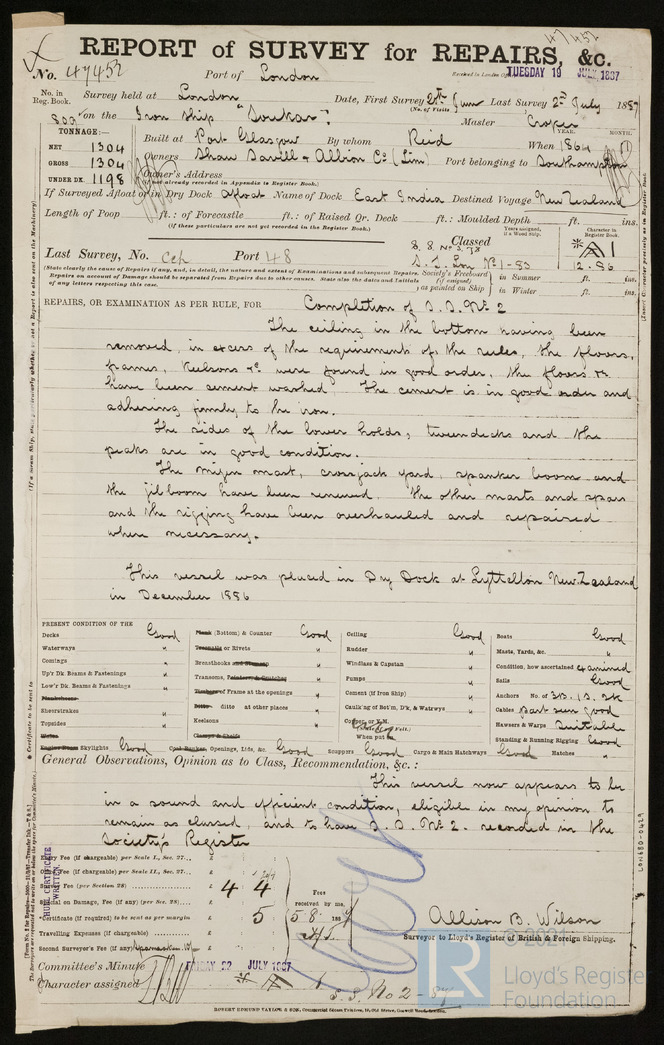 47452
REPORT of SURVEY for REPAIRS, &c.
No. 47452 Port of London Received in London Office TUESDAY 19 JULY 1887
No. in Reg. Book. Survey held at London Date, First Survey 24th Jan Last Survey 2nd July 1887
(No. of Visits)
809 on the Iron Ship "Soukar" Master Cooper
TONNAGE:— YEAR. MONTH.
NET 1304 Built at Port Glasgow By whom Reid When 1864
GROSS 1304 Owners Shaw Savill & Albion Co (Lim) Port belonging to Southampton
UNDER DK. 1198 Owner's Address
(If not already recorded in Appendix to Register Book.)
If Surveyed Afloat or in Dry Dock Afloat Name of Dock East India Destined Voyage New Zealand
Length of Poop ft.: of Forecastle ft.: of Raised Qr. Deck ft.: Moulded Depth ft. ins.
(If these particulars are not yet recorded in the Register Book.)
Last Survey, No. Port Classed Years assigned, if a Wood Ship. Character in Register Book.
A 1
S.S. Lon No 1-83 12.86
(State clearly the cause of Repairs if any, and, in detail, the nature and extent of Examinations and subsequent Repairs.
Repairs on account of Damage should be separated from Repairs due to other causes. State also the dates and Initials
of any letters respecting this case.
Society's Freeboard (if assigned) as painted on Ship in Summer ft. ins.
in Winter ft. ins.
REPAIRS, OR EXAMINATION AS PER RULE, FOR Completion of S.S. No 2
The ceiling in the bottom having been
removed, in excess of the requirements of the rules, the floors,
frames, Keelsons &c. were found in good order, the floors &c
have been cement washed. The cement is in good order and
adhering firmly to the iron.
The sides of the lower holds, tweendecks and the
peaks are in good condition.
The mizen mast, crossjack yard, spanker boom and
the jibboom have been renewed, the other masts and spars
and the rigging have been overhauled and repaired
where necessary.
This vessel was placed in Dry Dock at Lyttelton New Zealand
in December 1886
PRESENT CONDITION OF THE
Decks Good Plank (Bottom) & Counter Good Ceiling Good Boats Good
Waterways " Treenails or Rivets " Rudder " Masts, Yards, &c. "
Comings " Breasthooks and Stemson " Windlass & Capstan " Condition, how ascertained examined
Up'r Dk. Beams & Fastenings " Transoms, Pointers & Crutches " Pumps " Sails Good
Low'r Dk. Beams & Fastenings " Timbers of Frame at the openings " Cement (if Iron Ship) " Anchors No. of 3B. 1S. 2K
Planksheers Ditto ditto at other places " Caulk'ng of Bot'm, D'k, & Watrwys " Cables part seen good
Sheerstrakes " Keelsons " Copper, or Y.M. Hawsers & Warps Suitable
Topsides " Clamps & Shelfs When put on Standing & Running Rigging Good
Engine Room Skylights Good Coal Bunker Openings, Lids, &c. Good Scuppers Good Cargo & Main Hatchways Good Hatches "
General Observations, Opinion as to Class, Recommendation, &c.:
This vessel now appears to be
in a sound and efficient condition, eligible in my opinion to
remain as classed and to have S.S. No 2. recorded in the
Society's Register
Entry Fee (if chargeable) per Scale I., Sec. 27... £
Fee (if chargeable) per Scale II., Sec. 27... £
Fee (per Section 28) £ 4 4
Special on Damage, Fee (if any) (per Sec. 28) £
Certificate (if required) to be sent as per margin 5
Travelling Expenses (if chargeable) £
Second Surveyor's Fee (if any) £
Fees received by me,
5 8 1887
Allison B. Wilson
Surveyor to Lloyd's Register of British & Foreign Shipping.
Committee's Minute FRIDAY 22 JULY 1887
Character assigned A 1
S.S. No 2 - 87
ROBERT EDMUND TAYLOR & SON, Commercial Steam Printers, 19, Old Street, Goswell Road, London.
HULL CERTIFICATE WRITTEN.
LON680-0429
© 2021
LR
Lloyd's Register
Foundation